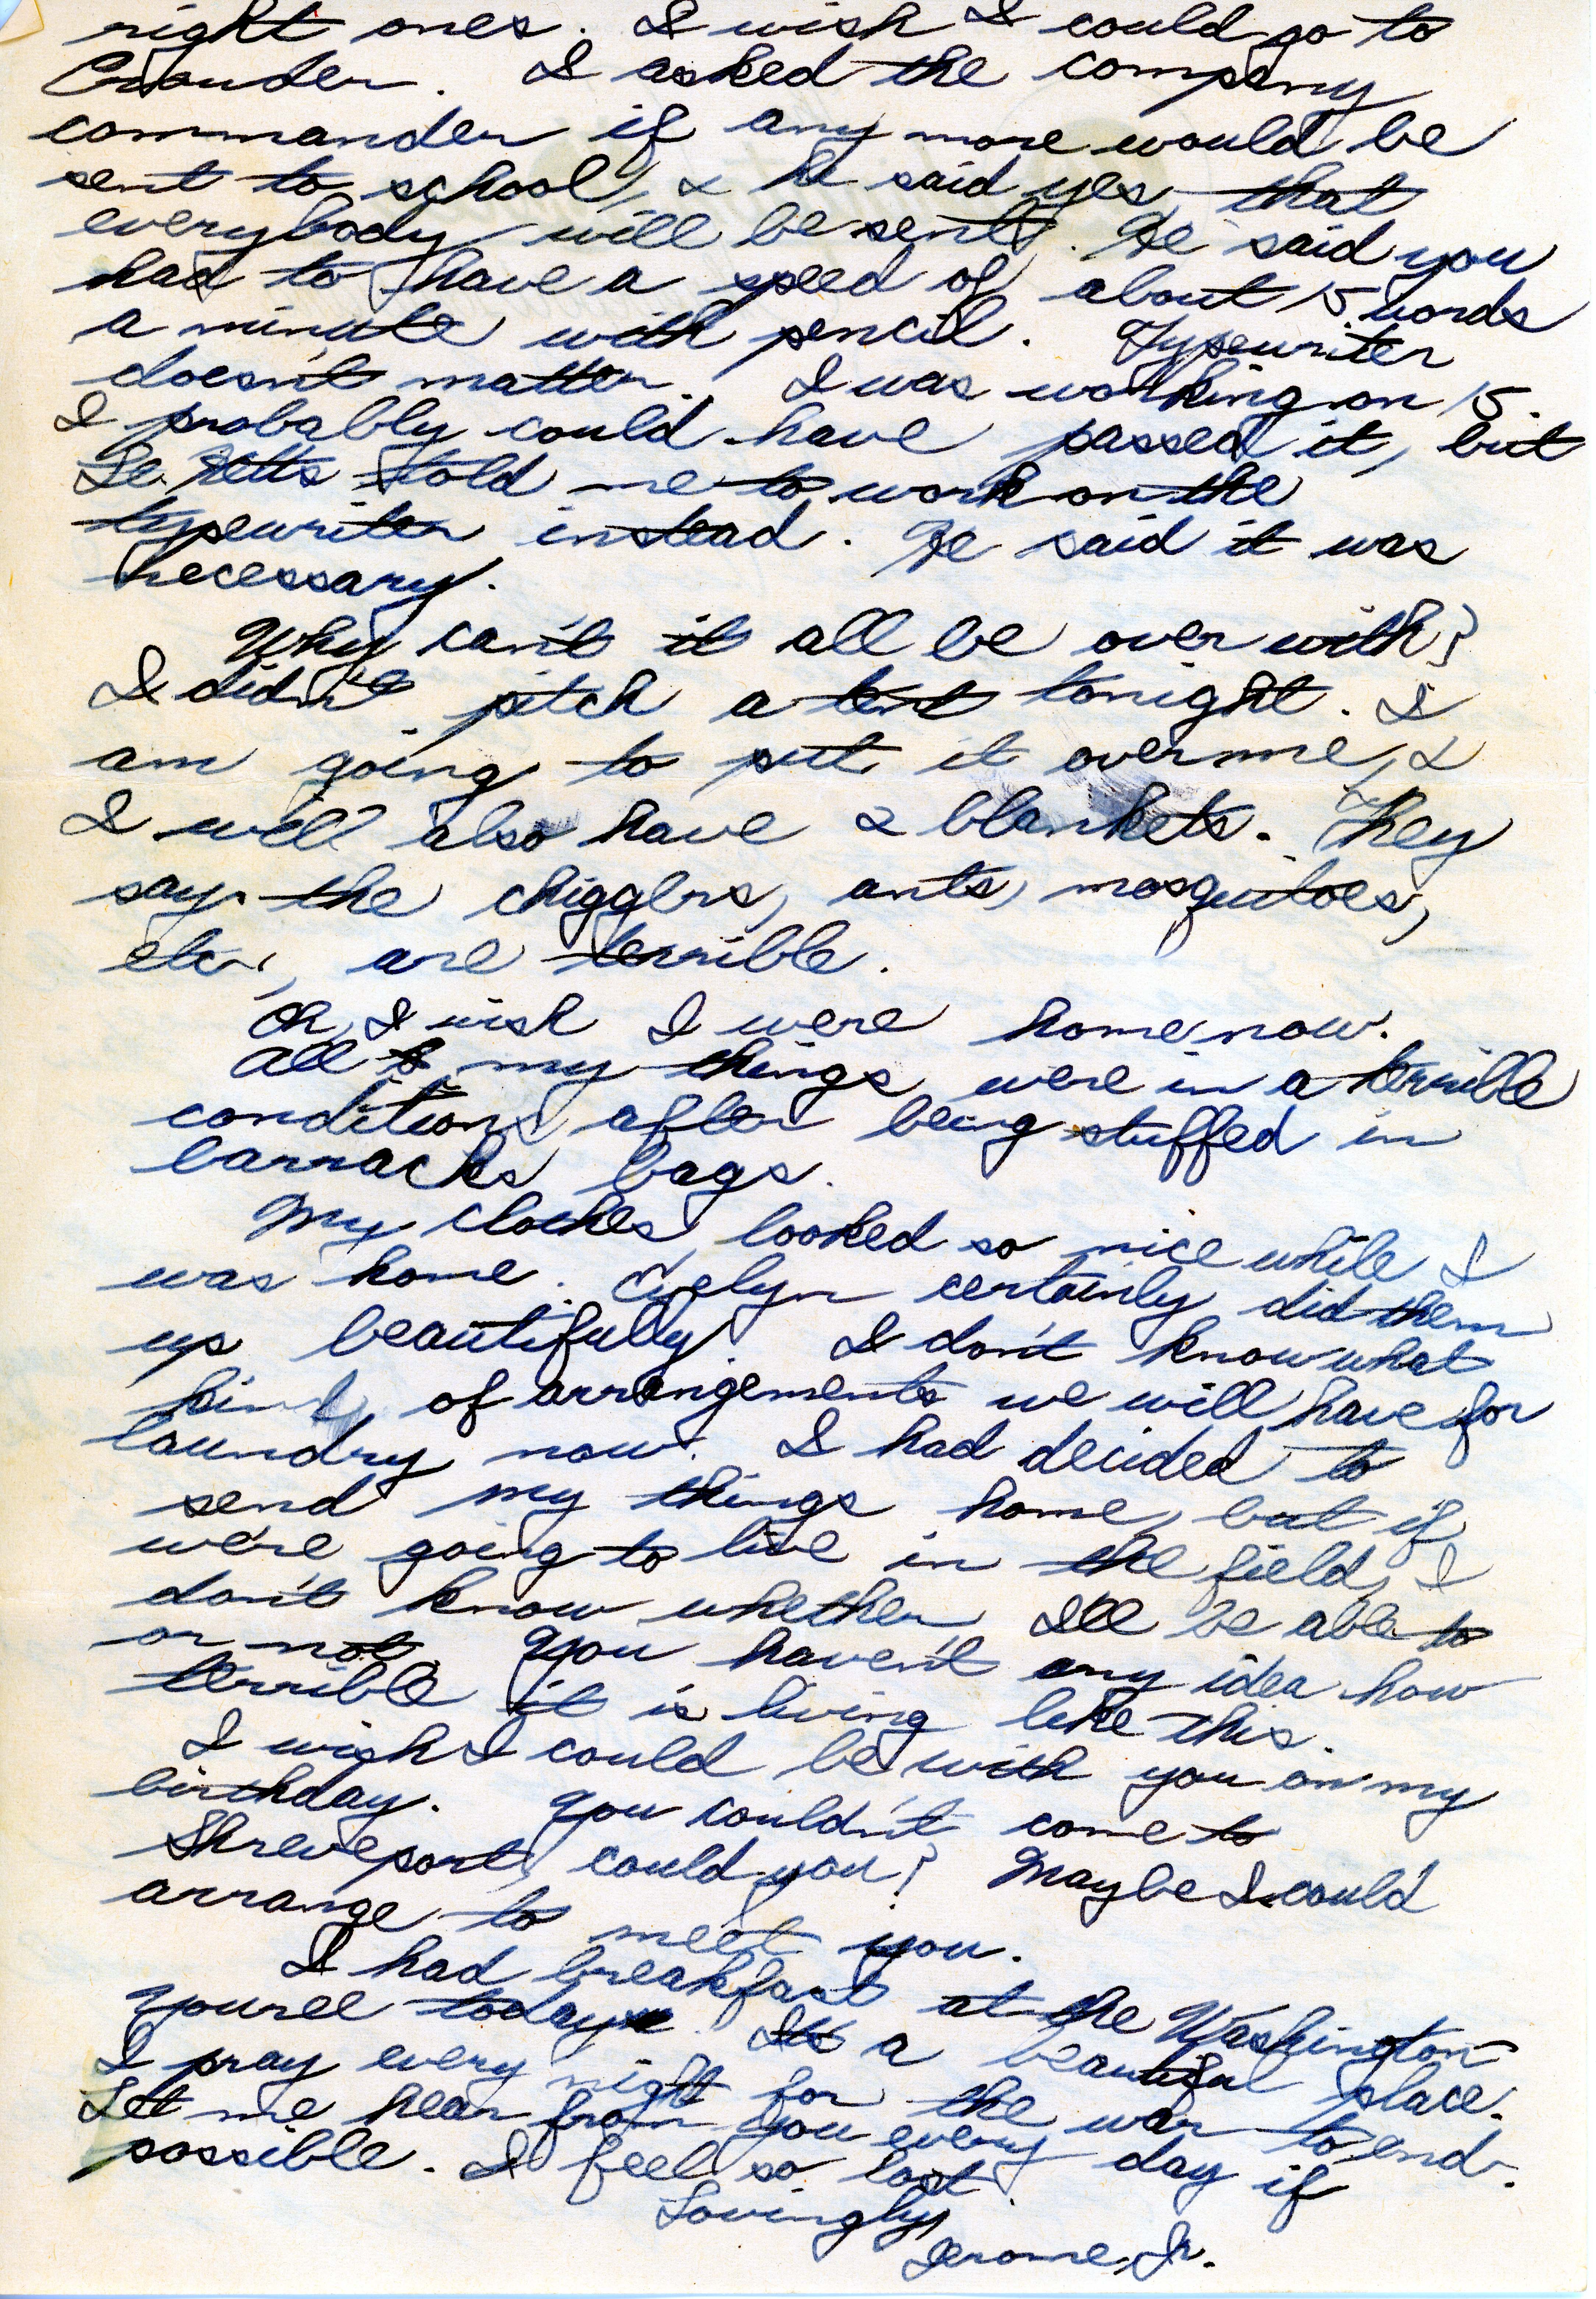 right ones. I wish I could go to
Crowder. I asked the company
commander if any more would be
sent to school, & he said yes, that
everybody will be sent. He said you
had to have a speed of about 15 words
a minute with pencil. Typewriter
doesn't matter. I was working on 15.
I probably could have passed it, but
told me to work on the
typewriter instead. He said it was
necessary.
Why can't it all be over with?
I didn't pitch a tent tonight. I
am going to put it over me, &
I will also have 2 blankets. They
say the chiggers, ants, mosquitoes,
etc., are terrible.
Oh, I wish I were home now.
All my things were in a terrible
condition after being stuffed in
barracks bags.
My clothes looked so nice while I
was home. Evelyn certainly did them
up beautifully. I don't know what
kind of arrangements we will have for
laundry now. I had decided to
send my things home, but if
we're going to live in the field, I
don't know whether I'll be able to
or not. You haven't any idea how
terrible it is living like this.
I wish I could be with you on my
birthday. You couldn't come to
Shreveport, could you? Maybe I could
arrange to meet you.
I had breakfast at the Washington
Youree today. It's a beautiful place.
I pray every night for the war to end.
Let me hear from you every day if
possible. I feel so lost.
Lovingly,
Jerome, Jr.